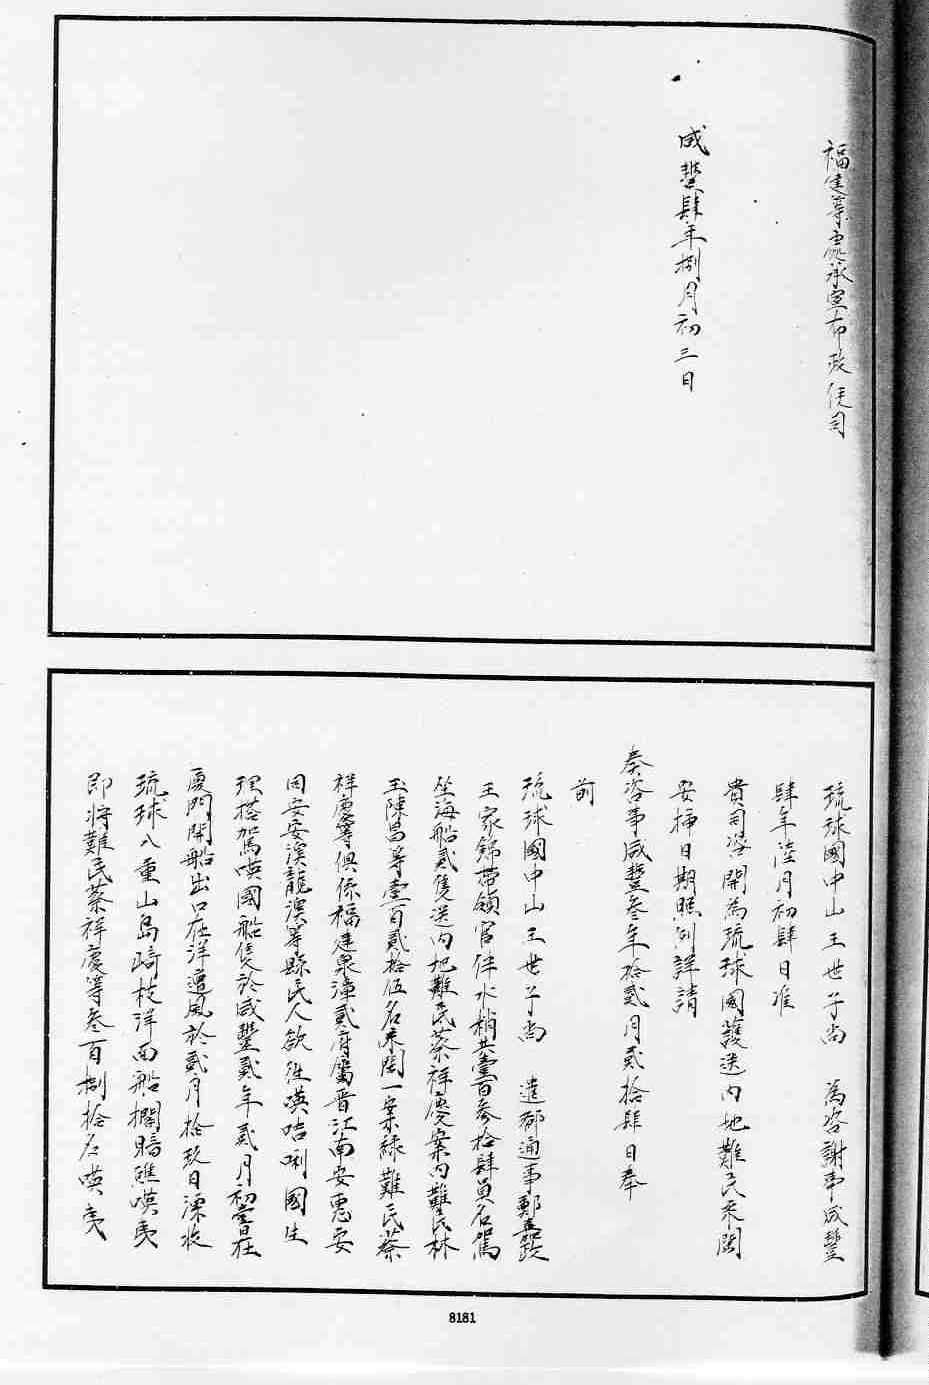 福建等處承宣布政使司
咸豐肆年捌月初三日
琉球國中山王世子尚　為咨謝事咸豐
肆年陸月初肆日准
貴司咨開為琉球國護送內地難民來閩
安插日期照例詳請
奏咨事咸豐叁年拾貳月貳拾肆日奉
前
琉球國中山王世子尚　遣都通事鄭嘉政
王家錦帶領官伴水梢共壹百叁拾肆員名駕
坐海船貳隻送內地難民蔡祥慶案內難民林
玉陳昌等壹百貳拾伍名來閩一案緣難民蔡
祥慶等俱係福建泉漳貳府屬晉江南安惠安
同安安溪龍溪等縣民人欲往嘆咭唎國生
理搭駕嘆國船隻於咸豐貳年貳月初壹日在
廈門開船出口在洋遭風於貳月拾玖日漂收
琉球八重山島崎枝洋面船擱暗礁嘆夷
即將難民蔡祥慶等叁百捌拾名嘆夷
8181